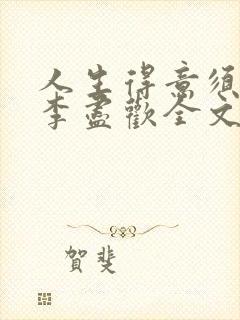 人生得意须
李盡歡全文
賀斐